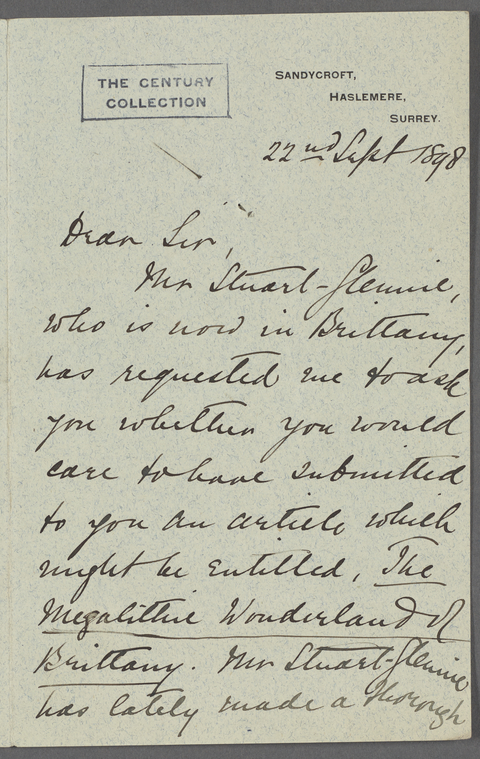 THE CENTURY
COLLECTION
SANDYCROFT,
HASLEMERE,
SURREY.
22nd Sept 1898
Dear Sir,
Mr Stuart-Glennie,
who is now in Brittany,
has requested me to ask
you whether you would
care to have submitted
to you an article which
might be entitled, The
Megalithic Wonderland of
Brittany. Mr Stuart-Glennie
has lately made a thorough